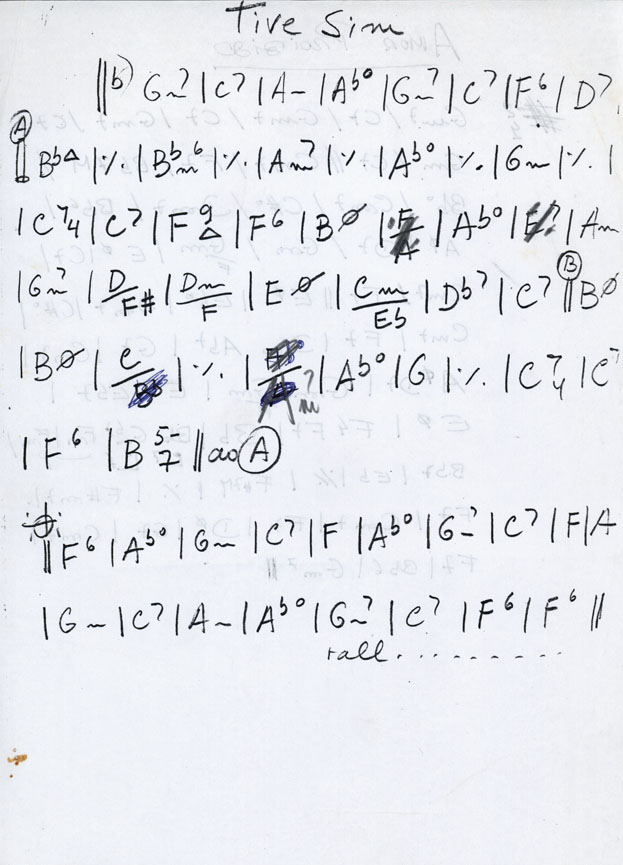 Tive Sim
||b) G-7 | C7 | A- | Ab° | G-7 | C7 | F6 | D7
(A) || BbΔ | ٪ | Bbm6 | ٪ | Am7 | ٪ | Ab° | ٪ | Gm | ٪ |
| C74 | C7 | F9Δ | F6 | BØ | | Ab° | | Am
| G-7 | D/F# | Dm/F | EØ | Cm/Eb | Db7 | C7 (B) || BØ
| BØ | C/ | ٪ | Am7 | Ab° | G | ٪ | C74 | C7
| F6 | B5-7 || ao (A)
|| F6 | Ab° | G- | C7 | F | Ab° | G-7 | C7 | F | A
| G- | C7 | A- | Ab° | G-7 | C7 | F6 | F6 ||
rall. . . . . . . . .